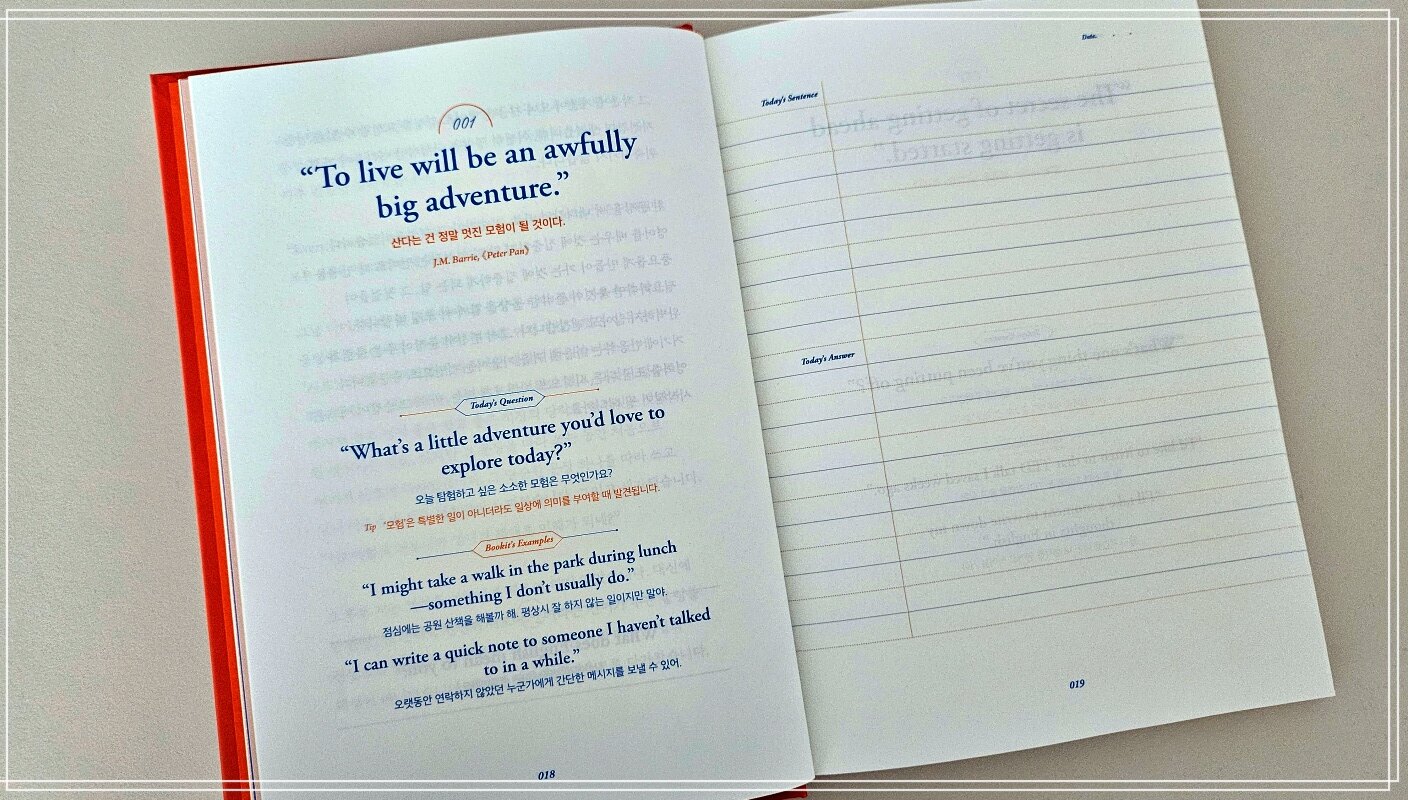 001
“To live will be an awfully
big adventure.”
산다는 건 정말 멋진 모험이 될 것이다.
J.M. Barrie, 《Peter Pan》
Today's Question
“What's a little adventure you'd love to
explore today?”
오늘 탐험하고 싶은 소소한 모험은 무엇인가요?
Tip ‘모험’은 특별한 일이 아니더라도 일상에 의미를 부여할 때 발견됩니다.
Bookit's Examples
“I might take a walk in the park during lunch
—something I don't usually do.”
점심에는 공원 산책을 해볼까 해. 평상시 잘 하지 않는 일이지만 말야.
“I can write a quick note to someone I haven't talked
to in a while.”
오랫동안 연락하지 않았던 누군가에게 간단한 메시지를 보낼 수 있어.
018
Date. . .
Today's Sentence
Today's Answer
019